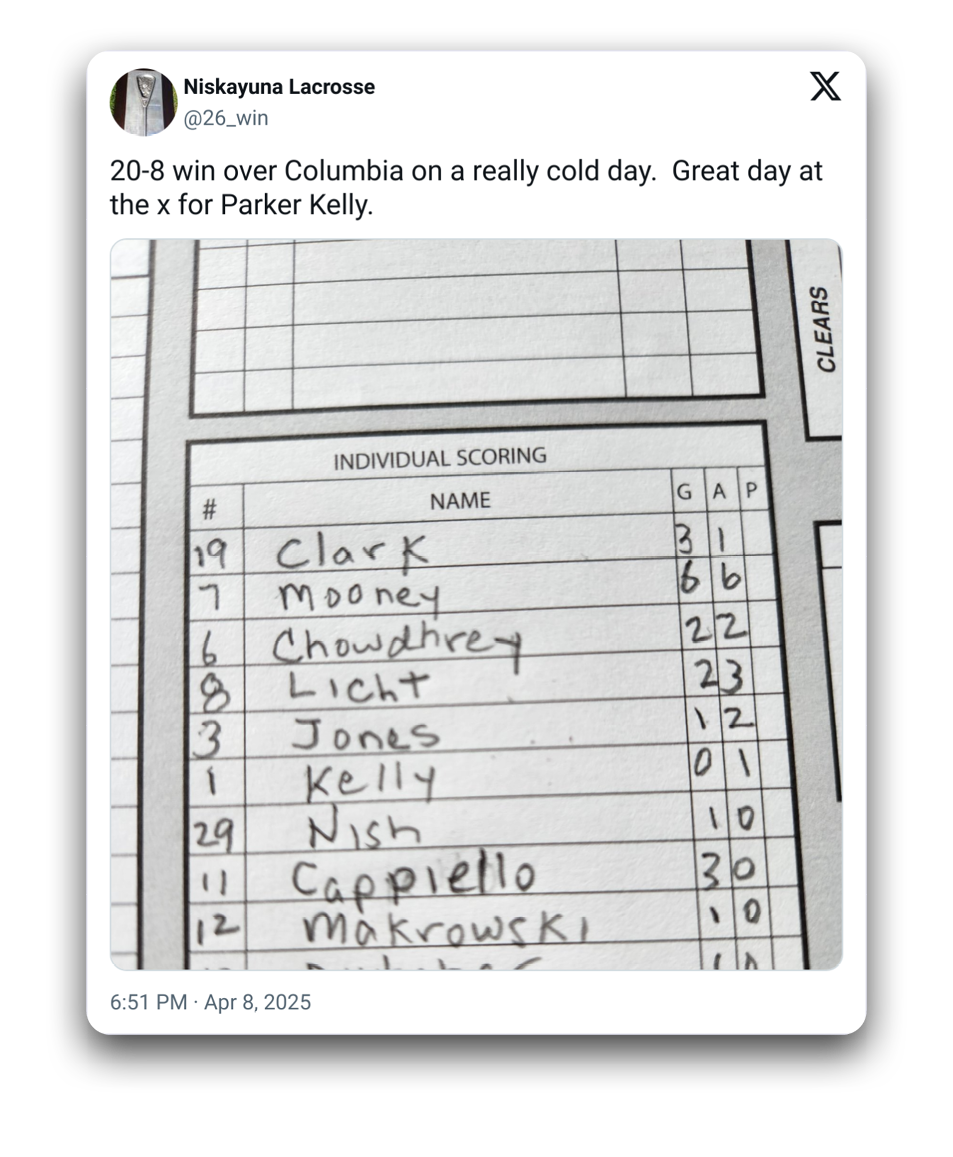 Niskayuna Lacrosse
@26_win
20-8 win over Columbia on a really cold day.  Great day at
the x for Parker Kelly.
CLEARS
INDIVIDUAL SCORING
# NAME G A P
19 Clark 3 1
7 Mooney 6 6
6 Chowdhrey 2 2
8 Licht 2 3
3 Jones 1 2
1 Kelly 0 1
29 Nish 1 0
11 Cappiello 3 0
12 Makrowski 1 0
6:51 PM · Apr 8, 2025